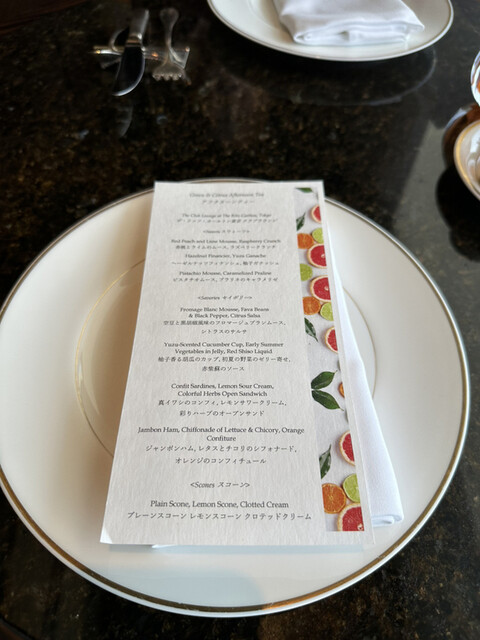 Citrus Afternoon Tea
アフタヌーンティー
The Club Lounge at The Ritz-Carlton, Tokyo
ザ・リッツ・カールトン東京 クラブラウンジ
<Sweets スウィーツ>
Red Peach and Lime Mousse, Raspberry Crunch
赤桃とライムのムース、ラズベリークランチ
Hazelnut Financier, Yuzu Ganache
ヘーゼルナッツフィナンシェ、柚子ガナッシュ
Pistachio Mousse, Caramelized Praline
ピスタチオムース、プラリネのキャラメリゼ
<Savories セイボリー>
Fromage Blanc Mousse, Fava Beans
& Black Pepper, Citrus Salsa
空豆と黒胡椒風味のフロマージュブランムース、
シトラスのサルサ
Yuzu-Scented Cucumber Cup, Early Summer
Vegetables in Jelly, Red Shiso Liquid
柚子香る胡瓜のカップ、初夏の野菜のゼリー寄せ、
赤紫蘇のソース
Confit Sardines, Lemon Sour Cream,
Colorful Herbs Open Sandwich
真イワシのコンフィ、レモンサワークリーム、
彩りハーブのオープンサンド
Jambon Ham, Chiffonade of Lettuce & Chicory, Orange
Confiture
ジャンボンハム、レタスとチコリのシフォナード、
オレンジのコンフィチュール
<Scones スコーン>
Plain Scone, Lemon Scone, Clotted Cream
プレーンスコーン レモンスコーン クロテッドクリーム